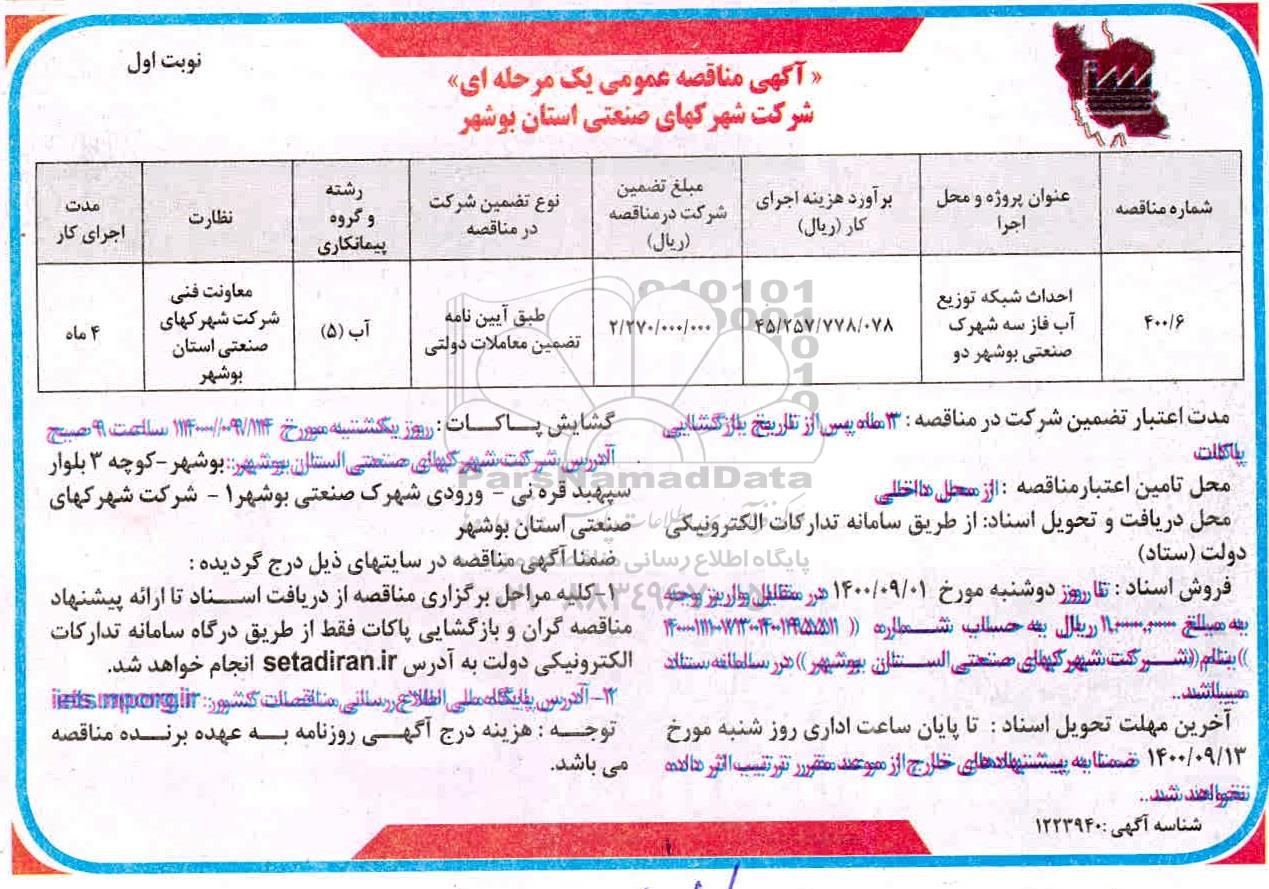 نوبت اول
« آگهی مناقصه عمومی یک مرحله ای»
شرکت شهرکهای صنعتی استان بوشهر
شماره مناقصه
عنوان پروژه و محل
اجرا
برآورد هزینه اجرای
کار (ریال)
مبلغ تضمین
شرکت درمناقصه
(ریال)
نوع تضمین شرکت
در مناقصه
رشته
و گروه
پیمانکاری
نظارت
مدت
اجرای کار
۴۰۰/۶
احداث شبکه توزیع
آب فاز سه شهرک
صنعتی بوشهر دو
۴۵/۲۵۷/۷۷۸/۰۷۸
۲/۲۷۰/۰۰۰/۰۰۰
طبق آیین نامه
تضمین معاملات دولتی
آب (۵)
معاونت فنی
شرکت شهرکهای
صنعتی استان
بوشهر
۴ ماه
مدت اعتبار تضمین شرکت در مناقصه : ۳ ماه پس از تاریخ بازگشایی
پاکات
محل تامین اعتبارمناقصه : از محل داخلی
محل دریافت و تحویل اسناد: از طریق سامانه تدارکات الکترونیکی
دولت (ستاد)
فروش اسناد : تا روز دوشنبه مورخ ۱۴۰۰/۰۹/۰۱ در مقابل واریز وجه
به مبلغ ریال به حساب شماره ((
))بنام((شرکت شهرکهای صنعتی استان بوشهر)) در سامانه ستاد
میباشد.
آخرین مهلت تحویل اسناد : تا پایان ساعت اداری روز شنبه مورخ
۱۴۰۰/۰۹/۱۳ ضمنا به پیشنهادهای خارج از موعد مقرر ترتیب اثر داده
نخواهد شد.
شناسه آگهی :۱۲۲۳۹۴۰
گشایش پاکات : روز یکشنبه مورخ ۱۴۰۰/۰۹/۱۴ ساعت ۹ صبح
آدرس شرکت شهرکهای صنعتی استان بوشهر: بوشهر -کوچه ۳ بلوار
سپهبد قره نی - ورودی شهرک صنعتی بوشهر۱ - شرکت شهرکهای
صنعتی استان بوشهر
ضمنا آگهی مناقصه در سایتهای ذیل درج گردیده :
۱-کلیه مراحل برگزاری مناقصه از دریافت اسناد تا ارائه پیشنهاد
مناقصه گران و بازگشایی پاکات فقط از طریق درگاه سامانه تدارکات
الکترونیکی دولت به آدرس setadiran.ir انجام خواهد شد.
۲- آدرس پایگاه ملی اطلاع رسانی مناقصات کشور: iets.mporg.ir
توجه : هزینه درج آگهی روزنامه به عهده برنده مناقصه
می باشد.
ParsNamadData